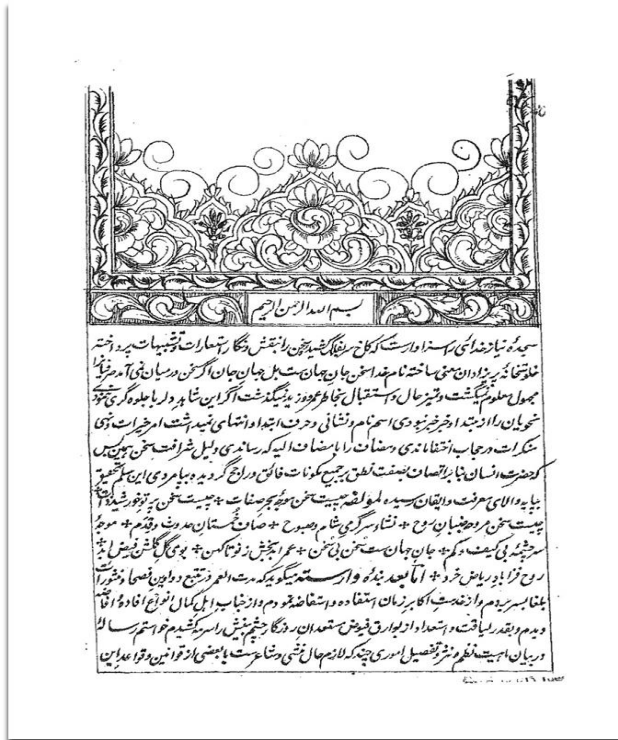 بسم الله الرحمن الرحیم
سجدهٔ نیاز خدائی را سزاوار است که کاخ سخن را بنقش و نگار استعارات و تشبیهات پرداخته
خلوتخانهٔ معنی ساخته نام خدا سخن جان جهان ست بل جهان جان اگر سخن درمیان نمی آمد
مجهول معلوم نمیگشت و تمیز حال و استقبال بخاطر عمرو و زید نمیگذشت اگر این شاهد دلربا جلوه گری
نحویان را از مبتدا و خبر خبر نبودی اسم نام و نشانی و حرف ابتدا و انتهای
منکرات در حجاب اختفا ماندی و مضاف را با مضاف الیه که رساندی دلیل شرافت سخن همین بس
که حضرت انسان بنابر اتصاف بصفت نطق بر جمیع مکونات فائق و راجح گردیده
بپایه والای معرفت و ایقان رسیده لمؤلفه چیست سخن موجهٔ بحر صفات
چیست سخن مروحه جنبان روح ٭ نشاء سرگرمی شام و صبوح ٭ صاف حدوث و قدم ٭ موجهٔ
سرچشمهٔ بی کیف و کم ٭ جان جهان ست سخن بی سخن ٭ عمر ابد بخش ز نو تا کهن ٭ بوی گل گلشن فیض ابد
روح فزا باد ریاض خرد ٭ اما بعد بنده وارسته میگوید که مدت العمر در تتبع دواوین فصحا و منشورات
بلغا بسر بردم و از خدمت اکابر زمان استفاده و استفاضه نمودم و از جناب اهل کمال انواع افاده و افاضه
دیدم و بقدر لیاقت و استعداد از بوارق فیوض مستعدان روزگار چشم بینش را سرمه کشیدم خواستم رسالهٔ
در بیان ماهیت نظم و نثر و تفصیل اموری چند که لازم حال منشی و شاعر ست با بعضی از قوانین و قواعد این